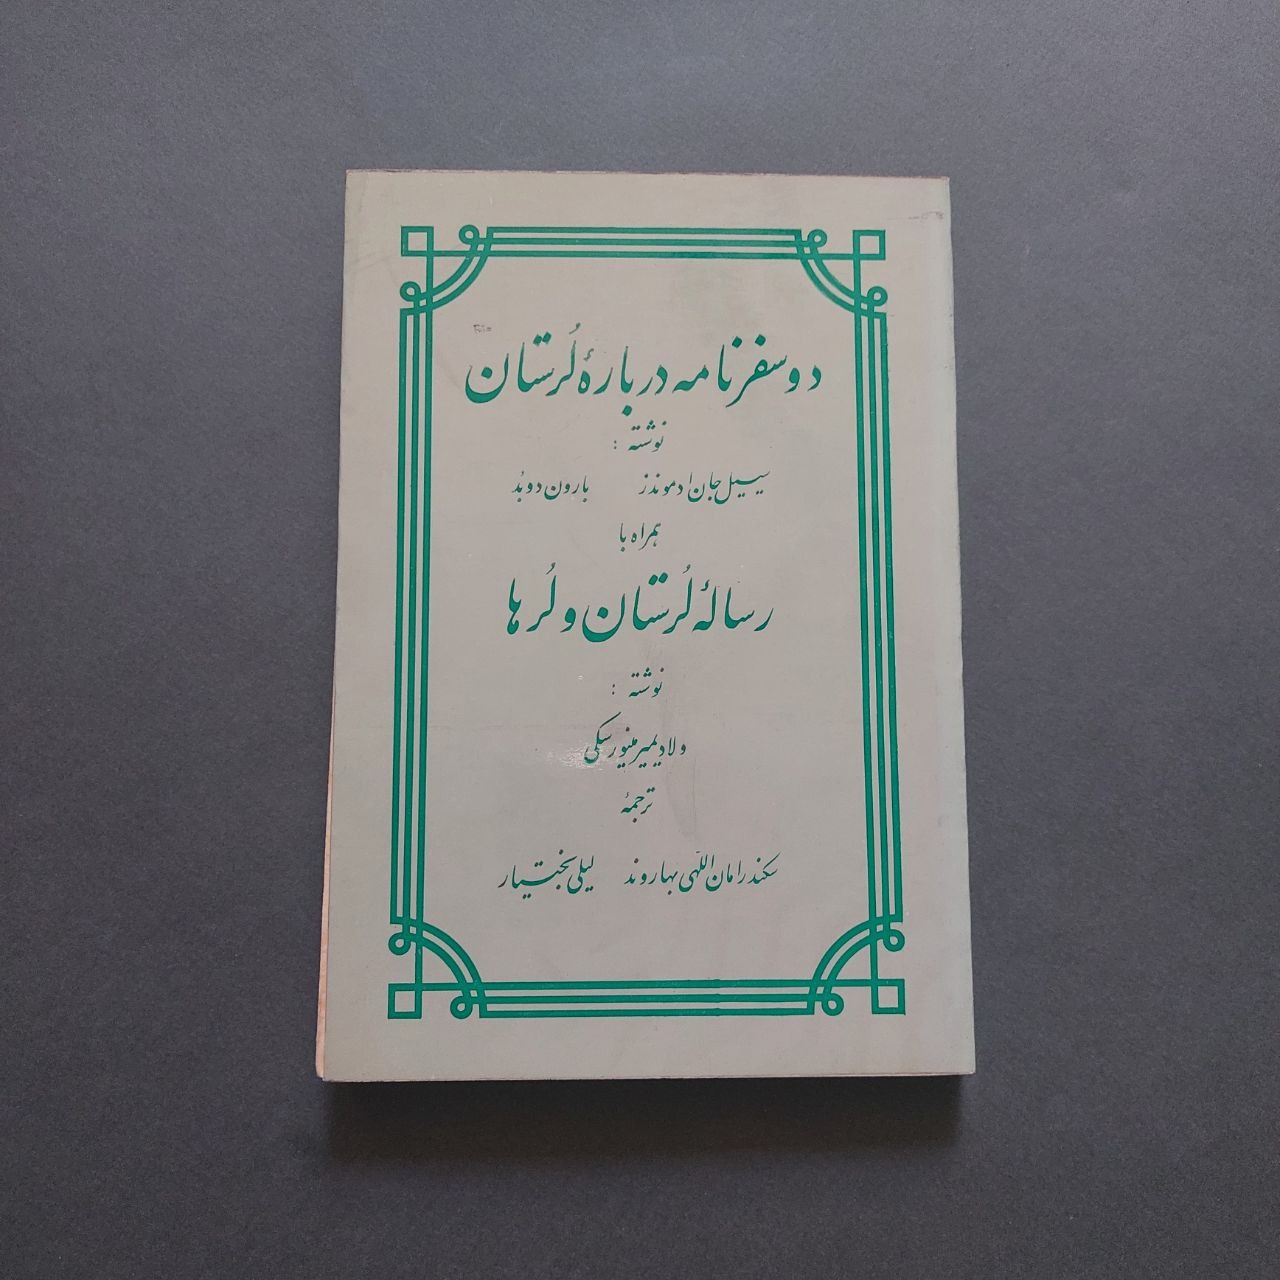 دو سفرنامه دربارهٔ لُرستان
نوشته :
سیسیل جان ادموندز بارون دوبُد
همراه با
رسالهٔ لُرستان و لُرها
نوشته :
ولادیمیر مینورسکی
ترجمهٔ
سکندر امان‌اللهی بهاروند لیلی بختیار